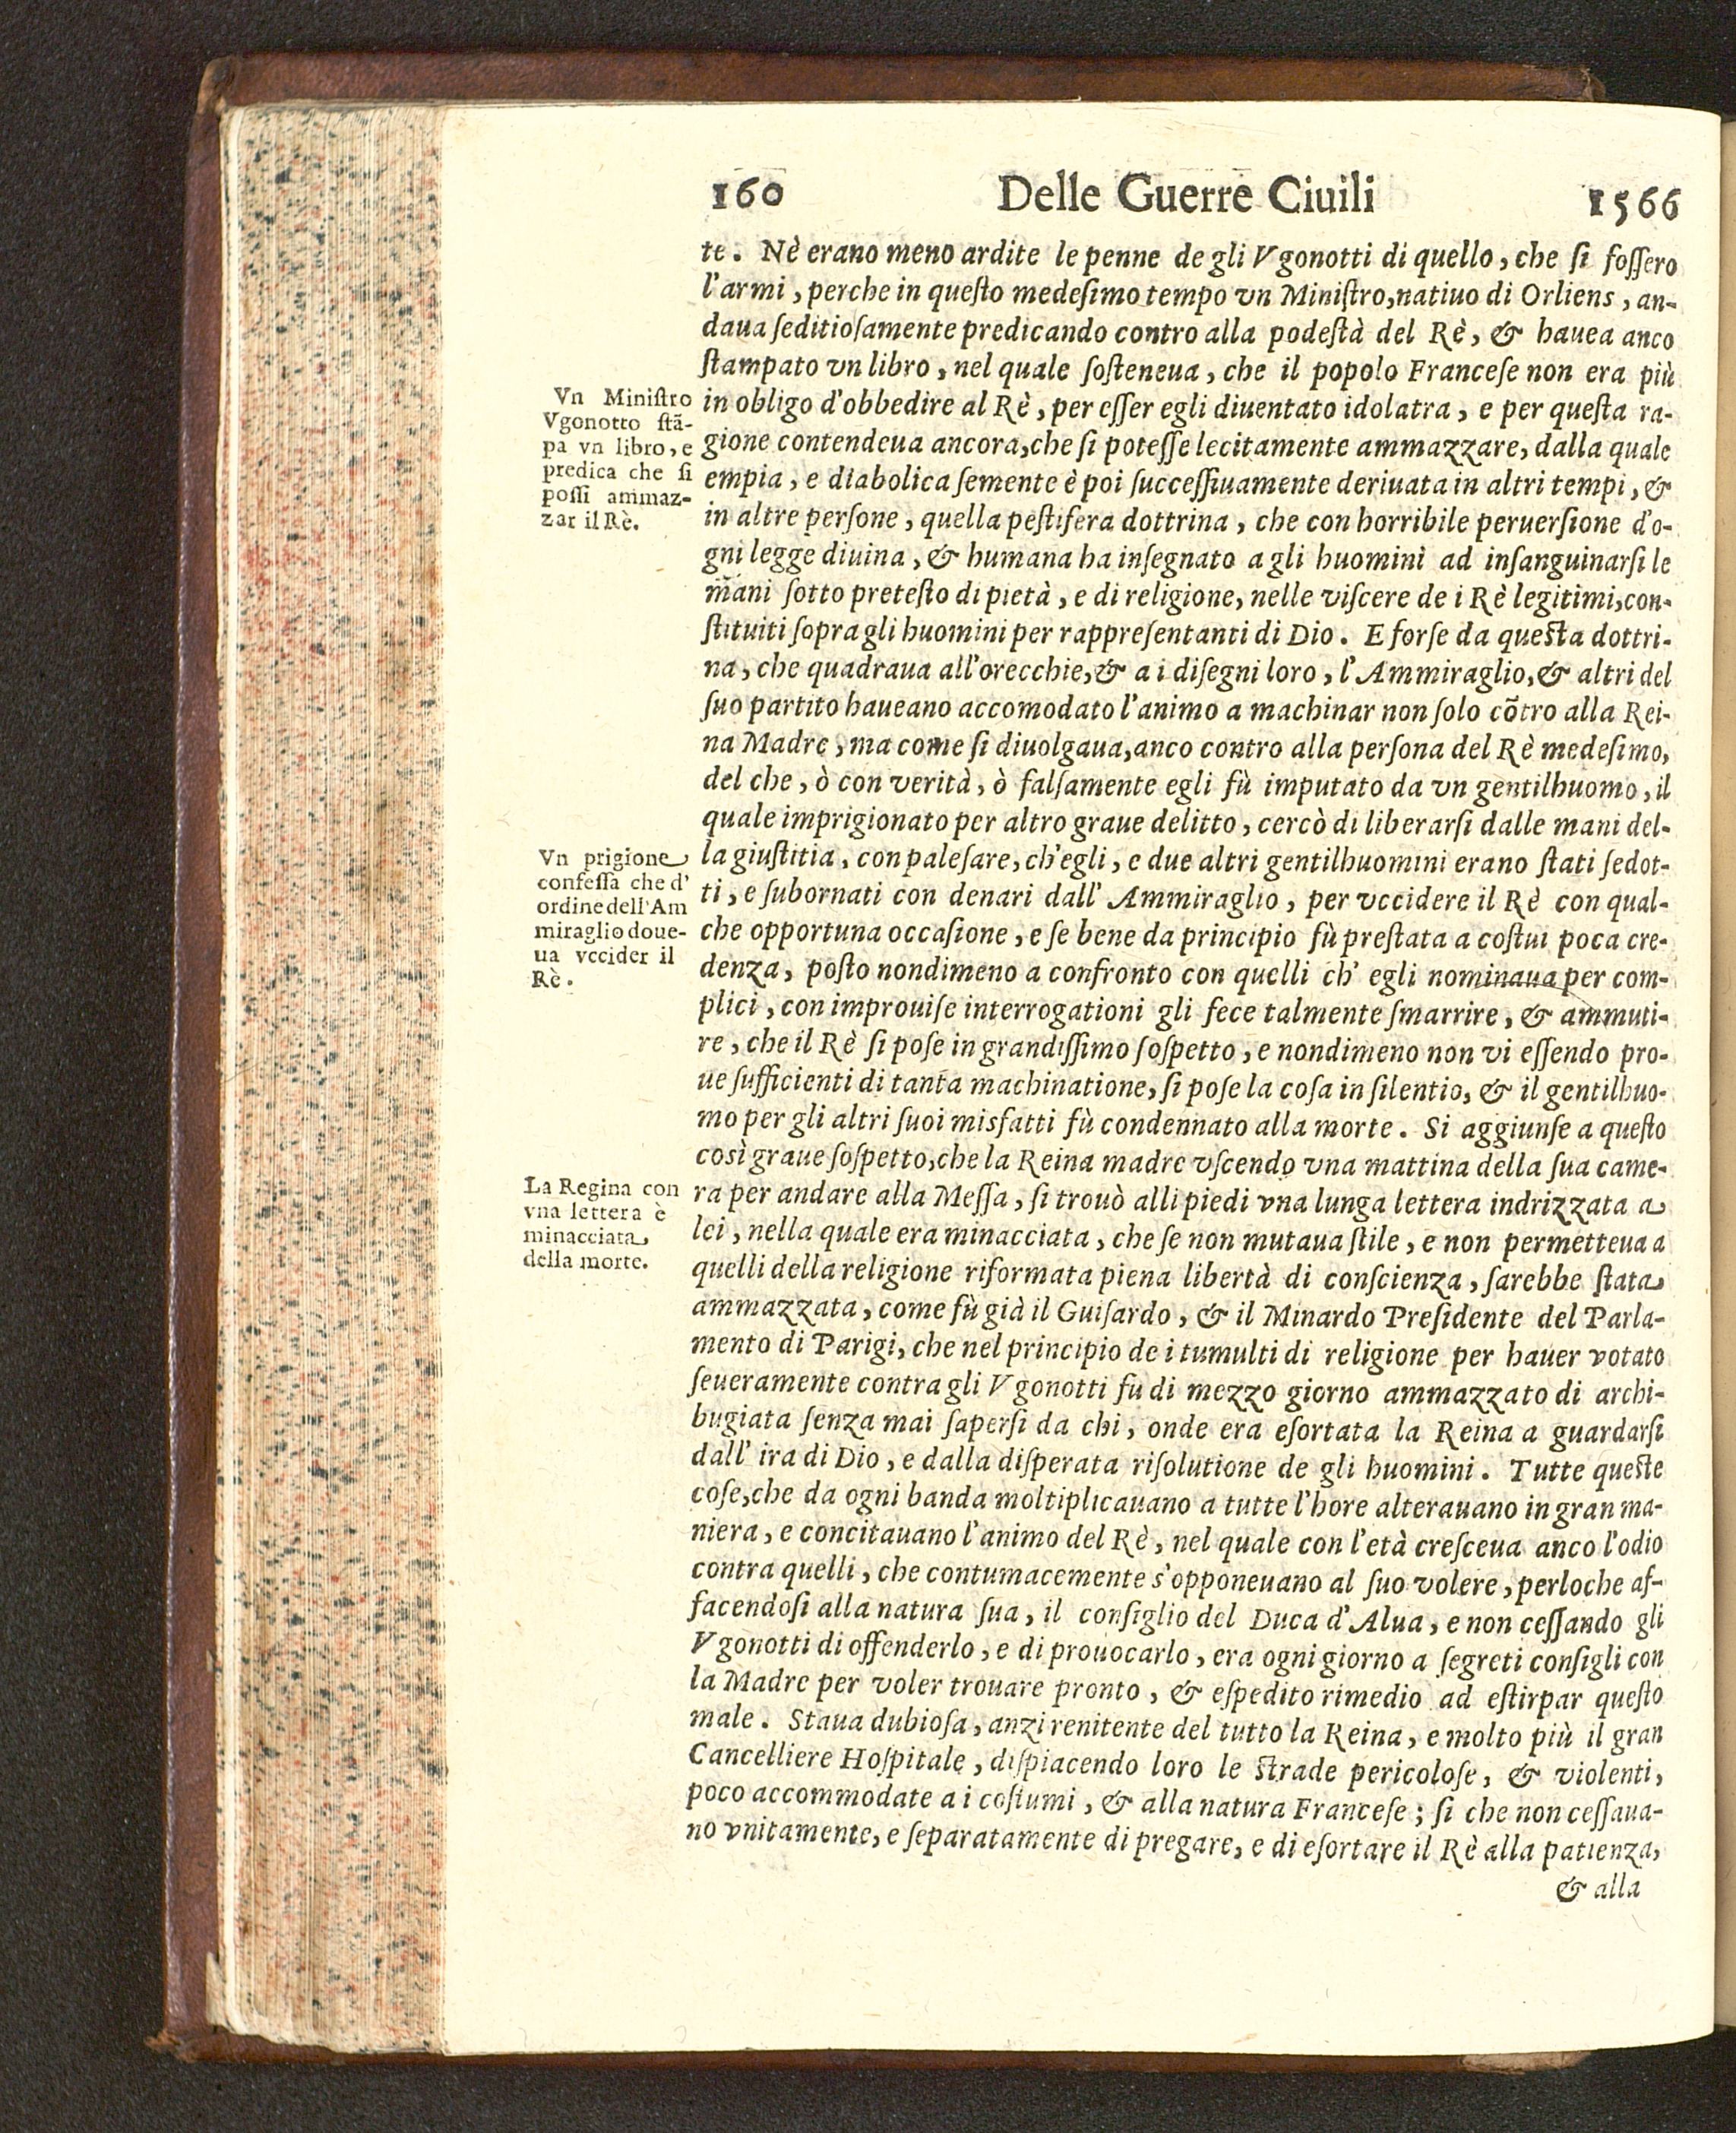 160 Delle Guerre Ciuili 1566
te. Nè erano meno ardite le penne de gli Vgonotti di quello, che ſi foſſero
l'armi, perche in queſto medeſimo tempo vn Miniſtro, natiuo di Orliens, an-
daua ſeditioſamente predicando contro alla podeſtà del Rè, & hauea anco
ſtampato vn libro, nel quale ſoſteneua, che il popolo Franceſe non era più
in obligo d'obbedire al Rè, per eſſer egli diuentato idolatra, e per queſta ra-
gione contendeua ancora, che ſi poteſſe lecitamente ammazzare, dalla quale
empia, e diabolica ſemente è poi ſucceſſiuamente deriuata in altri tempi, &
in altre perſone, quella peſtifera dottrina, che con horribile peruerſione d'o-
gni legge diuina, & humana ha inſegnato a gli huomini ad inſanguinarſi le
mani ſotto preteſto di pietà, e di religione, nelle viſcere de i Rè legitimi, con-
ſtituiti ſopra gli huomini per rappreſentanti di Dio. E forſe da queſta dottri-
na, che quadraua all'orecchie, & a i diſegni loro, l'Ammiraglio, & altri del
ſuo partito haueano accomodato l'animo a machinar non ſolo cõtro alla Rei-
na Madre, ma come ſi diuolgaua, anco contro alla perſona del Rè medeſimo,
del che, ò con verità, ò falſamente egli fù imputato da vn gentilhuomo, il
quale imprigionato per altro graue delitto, cercò di liberarſi dalle mani del-
la giuſtitia, con paleſare, ch'egli, e due altri gentilhuomini erano ſtati ſedot-
ti, e ſubornati con denari dall' Ammiraglio, per vccidere il Rè con qual-
che opportuna occaſione, e ſe bene da principio fù preſtata a coſtui poca cre-
denza, poſto nondimeno a confronto con quelli ch' egli nominaua per com-
plici, con improuiſe interrogationi gli fece talmente ſmarrire, & ammuti-
re, che il Rè ſi poſe in grandiſſimo ſoſpetto, e nondimeno non vi eſſendo pro-
ue ſufficienti di tanta machinatione, ſi poſe la coſa in ſilentio, & il gentilhuo-
mo per gli altri ſuoi misfatti fù condennato alla morte. Si aggiunſe a queſto
così graue ſoſpetto, che la Reina madre vſcendo vna mattina della ſua came-
ra per andare alla Meſſa, ſi trouò alli piedi vna lunga lettera indrizzata a
lei, nella quale era minacciata, che ſe non mutaua ſtile, e non permetteua a
quelli della religione riformata piena libertà di conſcienza, ſarebbe ſtata
ammazzata, come fù già il Guiſardo, & il Minardo Preſidente del Parla-
mento di Parigi, che nel principio de i tumulti di religione per hauer votato
ſeueramente contra gli Vgonotti fu di mezzo giorno ammazzato di archi-
bugiata ſenza mai ſaperſi da chi, onde era eſortata la Reina a guardarſi
dall' ira di Dio, e dalla diſperata riſolutione de gli huomini. Tutte queſte
coſe, che da ogni banda moltiplicauano a tutte l'hore alterauano in gran ma-
niera, e concitauano l'animo del Rè, nel quale con l'età creſceua anco l'odio
contra quelli, che contumacemente s'opponeuano al ſuo volere, perloche af-
facendoſi alla natura ſua, il conſiglio del Duca d'Alua, e non ceſſando gli
Vgonotti di offenderlo, e di prouocarlo, era ogni giorno a ſegreti conſigli con
la Madre per voler trouare pronto, & eſpedito rimedio ad eſtirpar queſto
male. Staua dubioſa, anzi renitente del tutto la Reina, e molto più il gran
Cancelliere Hoſpitale, diſpiacendo loro le ſtrade pericoloſe, & violenti,
poco accommodate a i coſtumi, & alla natura Franceſe; ſi che non ceſſaua-
no vnitamente, e ſeparatamente di pregare, e di eſortare il Rè alla patienza,
& alla
Vn Miniſtro
Vgonotto ſtã-
pa vn libro, e
predica che ſi
poſſi ammaz-
zar il Rè.
Vn prigione
confeſſa che d'
ordine dell'Am
miraglio doue-
ua vccider il
Rè.
La Regina con
vna lettera è
minacciata
della morte.